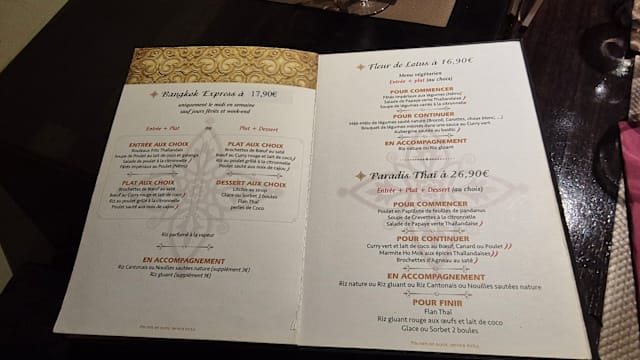 Bangkok Express à 17,90€
uniquement le midi en semaine
sauf jours fériés et weekend
Entrée + Plat
ou
Plat + Dessert
ENTRÉE AUX CHOIX
Rouleaux Frits Thaïlandais
Soupe de Poulet au lait de coco et galanga
Salade de poulet à la citronnelle
Pâtés Impériaux au Poulet (Nems)
PLAT AUX CHOIX
Brochettes de Bœuf au saté
Bœuf au Curry rouge et lait de coco
Riz au poulet grillé à la citronnelle
Poulet sauté aux noix de cajou
PLAT AUX CHOIX
Brochettes de Bœuf au saté
Bœuf au Curry rouge et lait de coco
Riz au poulet grillé à la citronnelle
Poulet sauté aux noix de cajou
DESSERT AUX CHOIX
Litchis au sirop
Glace ou Sorbet 2 boules
Flan Thaï
perles de Coco
Riz parfumé à la vapeur
EN ACCOMPAGNEMENT
Riz Cantonais ou Nouilles sautées nature (supplément 3€)
Riz gluant (supplément 1€)
Prix nets en euros, service inclus
Fleur de Lotus à 16,90€
Menu végétarien
Entrée + plat (au choix)
POUR COMMENCER
Pâtés Impériaux aux légumes (Nems)
Salade de Papaye verte Thaïlandaise
Soupe de légumes verts à la citronnelle
POUR CONTINUER
légumes sauté nature (Brocoli, Carottes, choux blanc, ...)
Bouquet de légumes mijotés dans une sauce au Curry vert
Aubergine sautée au basilic
EN ACCOMPAGNEMENT
Riz nature ou Riz gluant
Paradis Thaï à 26,90€
Entrée + Plat + Dessert (au choix)
POUR COMMENCER
Poulet en Papillote de feuilles de pandanus
Soupe de Crevettes à la citronnelle
Salade de Papaye verte Thaïlandaise
POUR CONTINUER
Curry vert et lait de coco au Bœuf, Canard ou Poulet
Marmite Ho Mok aux épices Thaïlandaises
Brochettes d'Agneau au saté
EN ACCOMPAGNEMENT
Riz nature ou Riz gluant ou Riz Cantonais ou Nouilles sautées nature
POUR FINIR
Flan Thaï
Riz gluant rouge aux œufs et lait de coco
Glace ou Sorbet 2 boules
Prix nets en euros, service inclus